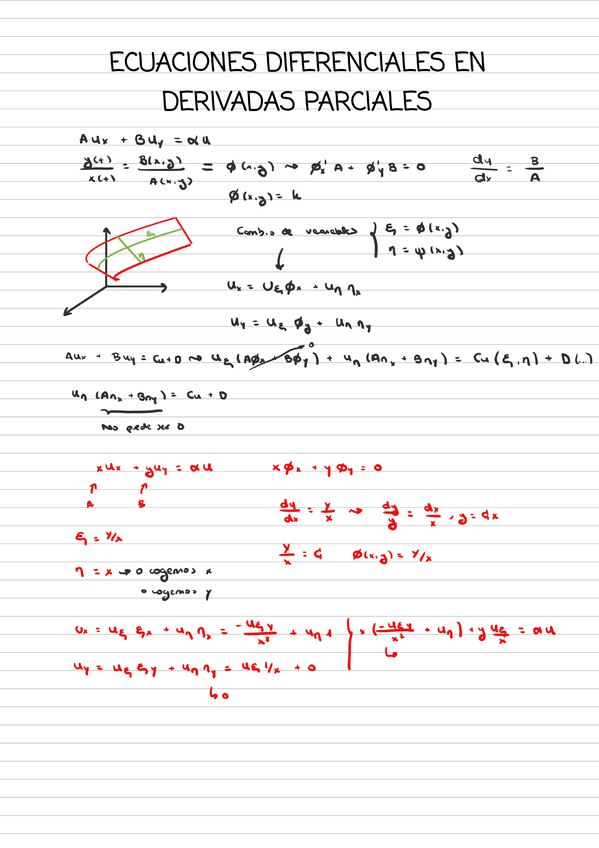 ECUACIONES DIFERENCIALES EN
DERIVADAS PARCIALES
A uₓ + B u_y = α u
y(t)/x(t) = B(x,y)/A(x,y) = ϕ(x,y) ⇝ ϕ'ₓ A + ϕ'_y B = 0   dy/dx = B/A
ϕ(x,y) = k
Cambio de variables { ξ = ϕ(x,y)
η = ψ(x,y)
ξ
η
uₓ = u_ξ ϕₓ + u_η ηₓ
u_y = u_ξ ϕ_y + u_η η_y
A uₓ + B u_y = Cu + D ⇝ u_ξ (Aϕₓ + Bϕ_y) + u_η (Aηₓ + Bη_y) = Cu(ξ,η) + D(...)
0
u_η (Aηₓ + Bη_y) = Cu + D
No puede ser 0
x uₓ + y u_y = α u   x ϕₓ + y ϕ_y = 0
↑ ↑
A B
dy/dx = y/x ⇝ dy/y = dx/x, y = Cx
ξ = y/x
y/x = C   ϕ(x,y) = y/x
η = x → o cogemos x
o cogemos y
uₓ = u_ξ ξₓ + u_η ηₓ = -u_ξ y/x² + u_η 1 | x(-u_ξ y/x² + u_η) + y u_ξ/x = α u
u_y = u_ξ ξ_y + u_η η_y = u_ξ 1/x + 0
↳ 0